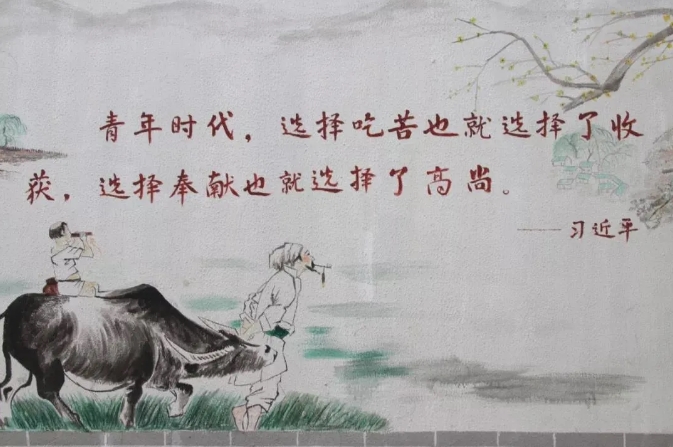 青年时代，选择吃苦也就选择了收
获，选择奉献也就选择了高尚。
——习近平